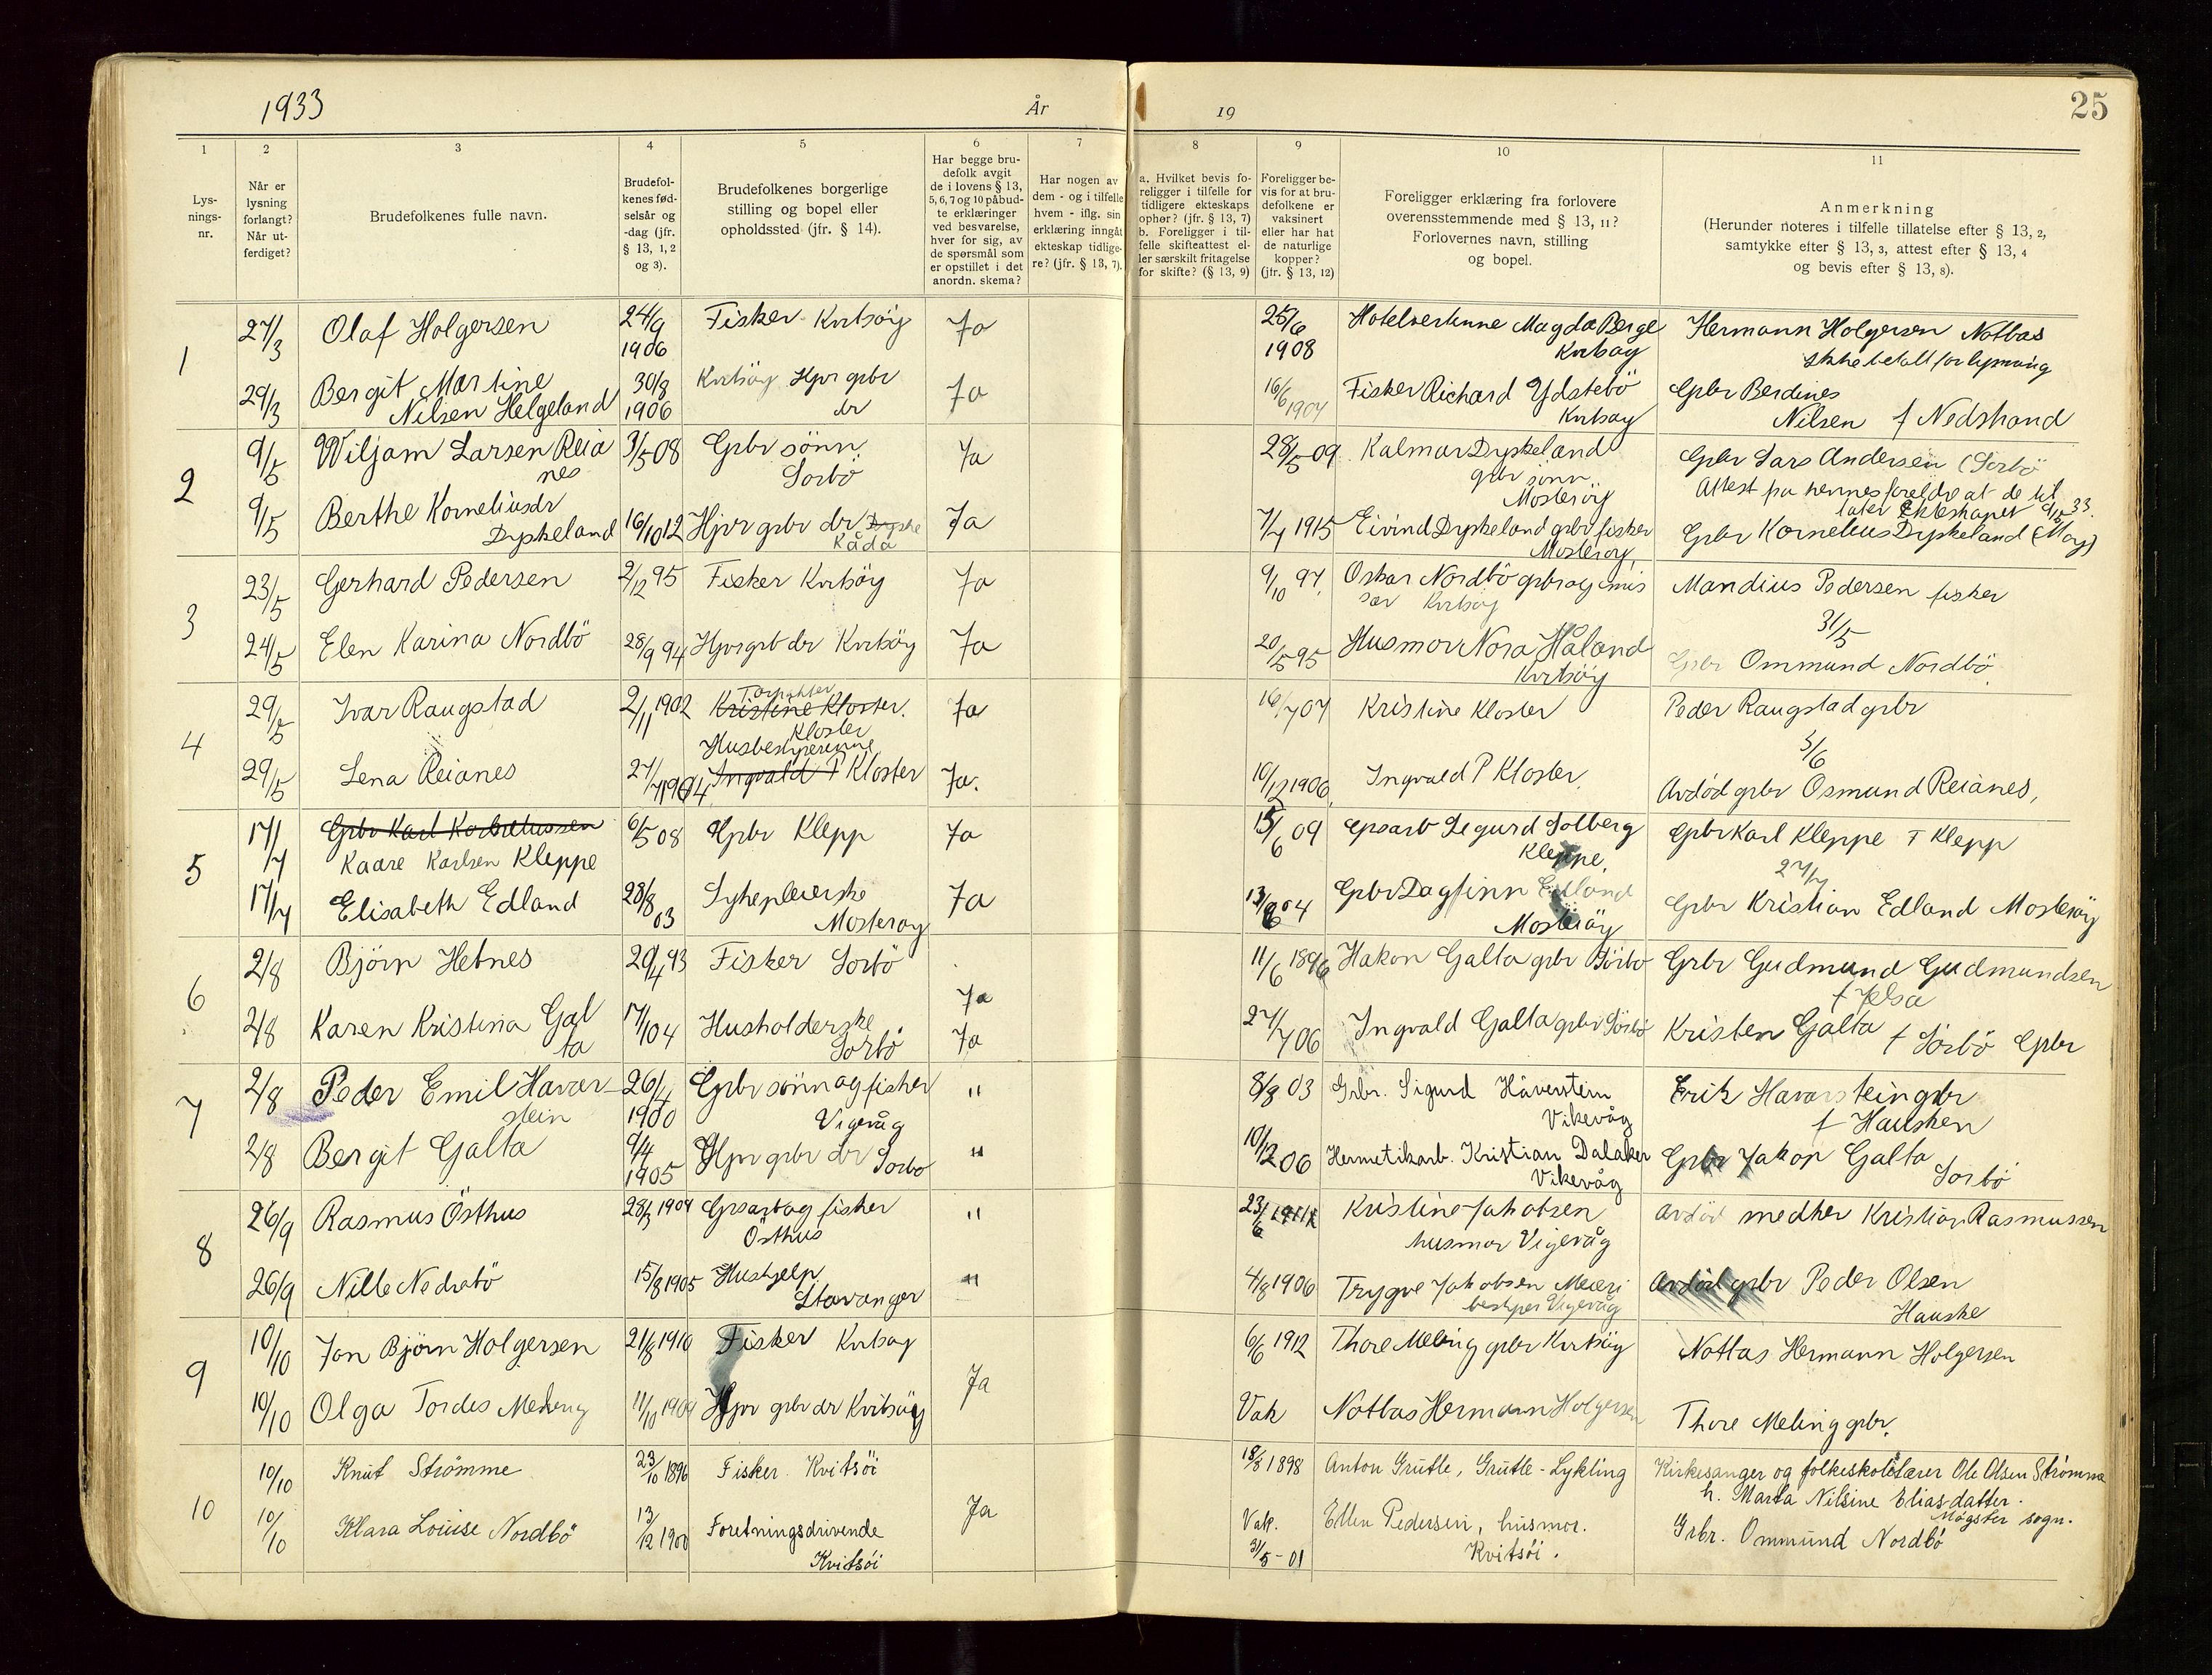 1933
År
19
25
1
2
3
4
5
6
7
8
9
10
11
Lys-
nings-
nr.
Når er
lysning
forlangt?
Når ut-
ferdiget?
Brudefolkenes fulle navn.
Brudefol-
kenes fød-
selsår og
-dag (jfr.
§ 13, 1, 2
og 3).
Brudefolkenes borgerlige
stilling og bopel eller
opholdssted (jfr. § 14).
Har begge bru-
defolk avgit
de i lovens § 13,
5, 6, 7 og 10 påbud-
te erklæringer
ved besvarelse,
hver for sig, av
de spørsmål som
er opstillet i det
anordn. skema?
Har nogen av
dem - og i tilfelle
hvem - iflg. sin
erklæring inngåt
ekteskap tidlige-
re? (jfr. § 13, 7).
a. Hvilket bevis fo-
religger i tilfelle for
tidligere ekteskaps
ophør? (jfr. § 13, 7)
b. Foreligger i til-
felle skifteattest el-
ler særskilt fritagelse
for skifte? (§ 13, 9)
Foreligger be-
vis for at bru-
defolkene er
vaksinert
eller har hat
de naturlige
kopper?
(jfr. § 13, 12)
Foreligger erklæring fra forlovere
overensstemmende med § 13, 11?
Forlovernes navn, stilling
og bopel.
Anmerkning
(Herunder noteres i tilfelle tillatelse efter § 13, 2,
samtykke efter § 13, 3, attest efter § 13, 4
og bevis efter § 13, 8).
1
27/3 Olaf Holgersen 24/9 1906 Fisker Kvitsöy Ja 25/6 1908 Hotelvertinne Magda Berge Kvitsöy Hermann Holgersen Notbas
Ikke betalt for lysning
29/3 Bergit Martine
Nilsen Helgeland 30/8 1906 Kvitsöy Hjvr grbr
dr Ja 16/6 1904 Fisker Richard Ydstebö
Kvitsöy Gpbr Berdines
Nilsen f Nedstrand
2
9/5 Wiljam Larsen Reia
nes 3/5 08 Gpbr sönn
Sorbö Ja 28/5 09 Kalmar Dyskeland
grbr sönn
Mosteröy Gpbr Lars Andersen (Sorbö
Attest fra hennes foreldre at de til
later Ekteskapet 9/5 33.
9/5 Berthe Korneliusdr
Dyskeland 16/10 12 Hjvr grbr dr
Kåda Ja 7/7 1915 Eivind Dyskeland grbr fisker
Mosteröy Gpbr Kornelius Dyskeland (Moy)
3
23/5 Gerhard Pedersen 2/12 95 Fisker Kvitsöy Ja 9/10 97 Oskar Nordbö grbr og emis
sær Kvitsöy Mandius Pedersen fisker
31/5
24/5 Elen Karina Nordbö 28/9 94 Hjvr grbr dr Kvitsöy Ja 20/5 95 Husmor Nora Håland
Kvitsöy Gpbr Ommund Nordbö
4
29/5 Ivar Raugstad 2/11 1902 Forpakter
Kristine Kloster.
Kloster Ja 16/7 07 Kristine Kloster Peder Raugstad grbr
3/6
29/5 Lena Reianes 27/7 1904 Husbestyrerinne
Ingvald P Kloster Ja. 10/12 1906 Ingvald P Kloster. Avdöd grbr Osmund Reianes,
5
17/7 Gpbr Karl Korneliussen
Kaare Karlsen Kleppe 6/5 08 Gpbr Klepp Ja 15/6 09 Gpsarb Sigurd Solberg
Kleppe. Gpbr Karl Kleppe f Klepp
27/7
17/7 Elisabeth Edland 28/8 03 Sykepleierske
Mosteröy Ja 13/8 04 Gpbr Dagfinn Edland
Mosteröy Gpbr Kristian Edland Mosteröy
6
2/8 Björn Hetnes 29/4 93 Fisker Sorbö Ja 11/6 1896 Hakon Galta grbr Sörbö Grbr Gudmund Gudmundsen
f Jelsa
2/8 Karen Kristina Gal
ta 17/1 04 Husholderske
Sorbö Ja 27/7 06 Ingvald Galta grbr Sörbö Kristen Galta f Sörbö Gpbr
7
2/8 Peder Emil Haver-
stein 26/4 1900 Gpbr sönn og fisker
Vigevåg " 8/8 03 Grbr. Sigurd Håverstein
Vikevåg Erik Havarstein grbr
f Hausken
2/8 Bergit Galta 9/4 1905 Hjvr grbr dr Sorbö " 10/12 06 Hermetikarb. Kristian Dalaker
Vikevåg Gpbr Jakop Galta
Sorbö
8
26/9 Rasmus Östhus 28/3 1904 Gpsarb og fisker
Östhus " 23/6 Kristine Jakobsen
husmor Vigevåg avdöd medher Kristian Rasmussen
26/9 Nille Nedrebö 15/8 1905 Hushjelp
Stavanger " 4/8 1906 Trygve Jakobsen Meieri
bestyrer Vigevåg Avdöd grbr Peder Olsen
Hauske
9
10/10 Jon Björn Holgersen 21/8 1910 Fisker Kvitsöy Ja 6/6 1912 Thore Meling grbr Kvitsöy Notbas Hermann Holgersen
10/10 Olga Tordes Meling 11/10 1904 Hjvr grbr dr Kvitsöy Vak Notbas Hermann Holgersen Thore Meling grbr.
10
10/10 Knut Strömme 23/10 1896 Fisker. Kvitsöi Ja 18/8 1898 Anton Grutle, Grutle - Lykling Kirkesanger og folkeskolelærer Ole Olsen Strömme
h. Marta Nilsine Eliasdatter.
Mögster sogn.
10/10 Klara Louise Nordbö 13/12 1900 Foretningsdrivende
Kvitsöi Vak. 31/5 - 01 Ellen Pedersen, husmor.
Kvitsöi. Grbr. Ommund Nordbö